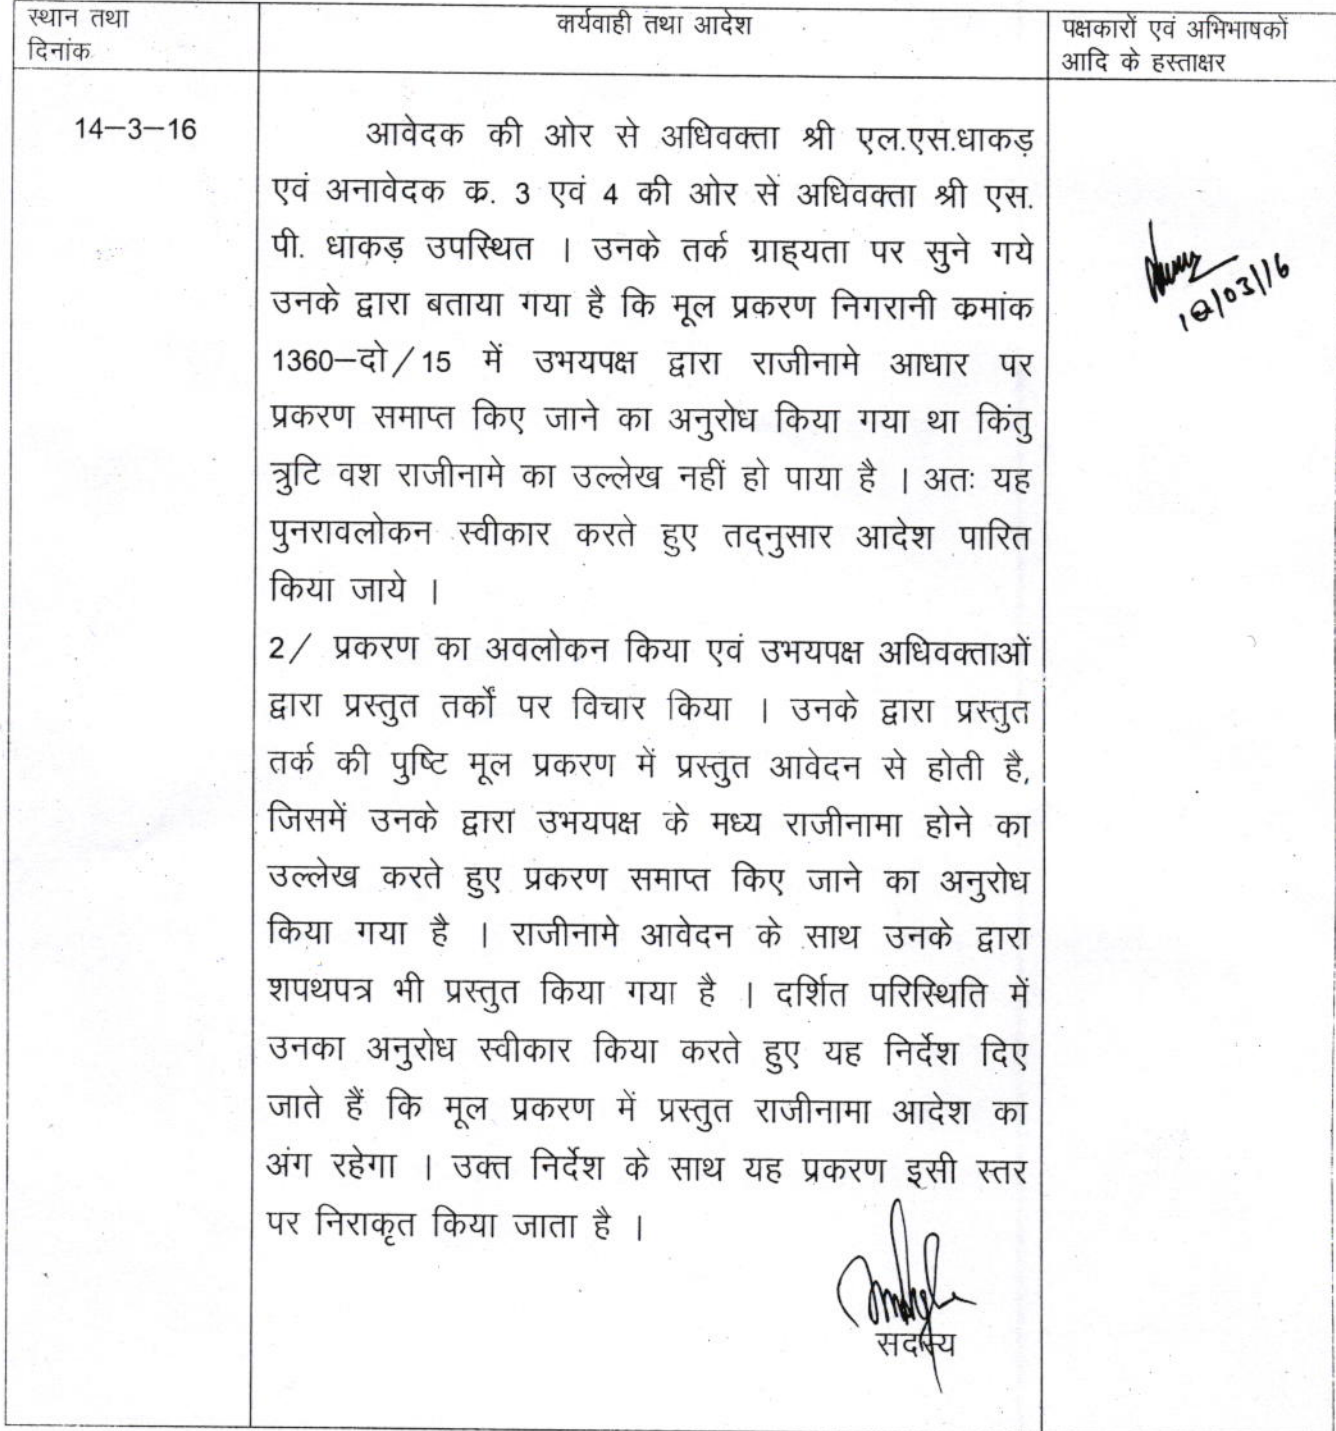 स्थान तथा
दिनांक
कार्यवाही तथा आदेश
पक्षकारों एवं अभिभाषकों
आदि के हस्ताक्षर
14–3–16
आवेदक की ओर से अधिवक्ता श्री एल.एस.धाकड़
एवं अनावेदक क्र. 3 एवं 4 की ओर से अधिवक्ता श्री एस.
पी. धाकड़ उपस्थित । उनके तर्क ग्राह्यता पर सुने गये
उनके द्वारा बताया गया है कि मूल प्रकरण निगरानी क्रमांक
1360–दो/15 में उभयपक्ष द्वारा राजीनामे आधार पर
प्रकरण समाप्त किए जाने का अनुरोध किया गया था किंतु
त्रुटि वश राजीनामे का उल्लेख नहीं हो पाया है । अतः यह
पुनरावलोकन स्वीकार करते हुए तद्नुसार आदेश पारित
किया जाये ।
2/ प्रकरण का अवलोकन किया एवं उभयपक्ष अधिवक्ताओं
द्वारा प्रस्तुत तर्कों पर विचार किया । उनके द्वारा प्रस्तुत
तर्क की पुष्टि मूल प्रकरण में प्रस्तुत आवेदन से होती है,
जिसमें उनके द्वारा उभयपक्ष के मध्य राजीनामा होने का
उल्लेख करते हुए प्रकरण समाप्त किए जाने का अनुरोध
किया गया है । राजीनामे आवेदन के साथ उनके द्वारा
शपथपत्र भी प्रस्तुत किया गया है । दर्शित परिस्थिति में
उनका अनुरोध स्वीकार किया करते हुए यह निर्देश दिए
जाते हैं कि मूल प्रकरण में प्रस्तुत राजीनामा आदेश का
अंग रहेगा । उक्त निर्देश के साथ यह प्रकरण इसी स्तर
पर निराकृत किया जाता है ।
सदस्य